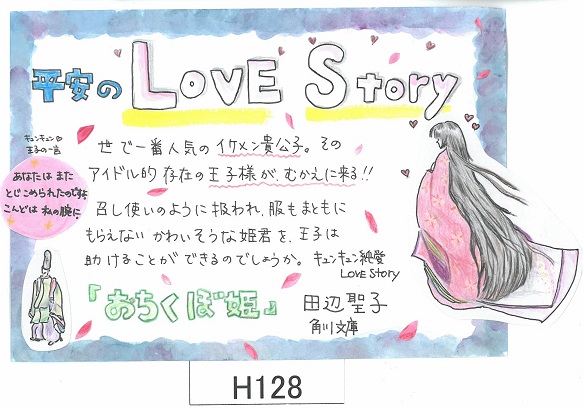 平安の LOVE Story
キュンキュン♡
王子の一言
あなたは また
とじこめられたのですね
こんどは 私の腕に
世で一番人気の イケメン貴公子。その
アイドル的 存在の王子様が、むかえに来る!!
召し使いのように 扱われ、服もまともに
もらえない かわいそうな姫君を、王子は
助けることが できるのでしょうか。 キュンキュン純愛
LOVE Story
『おちくぼ姫』 田辺聖子
角川文庫
H128